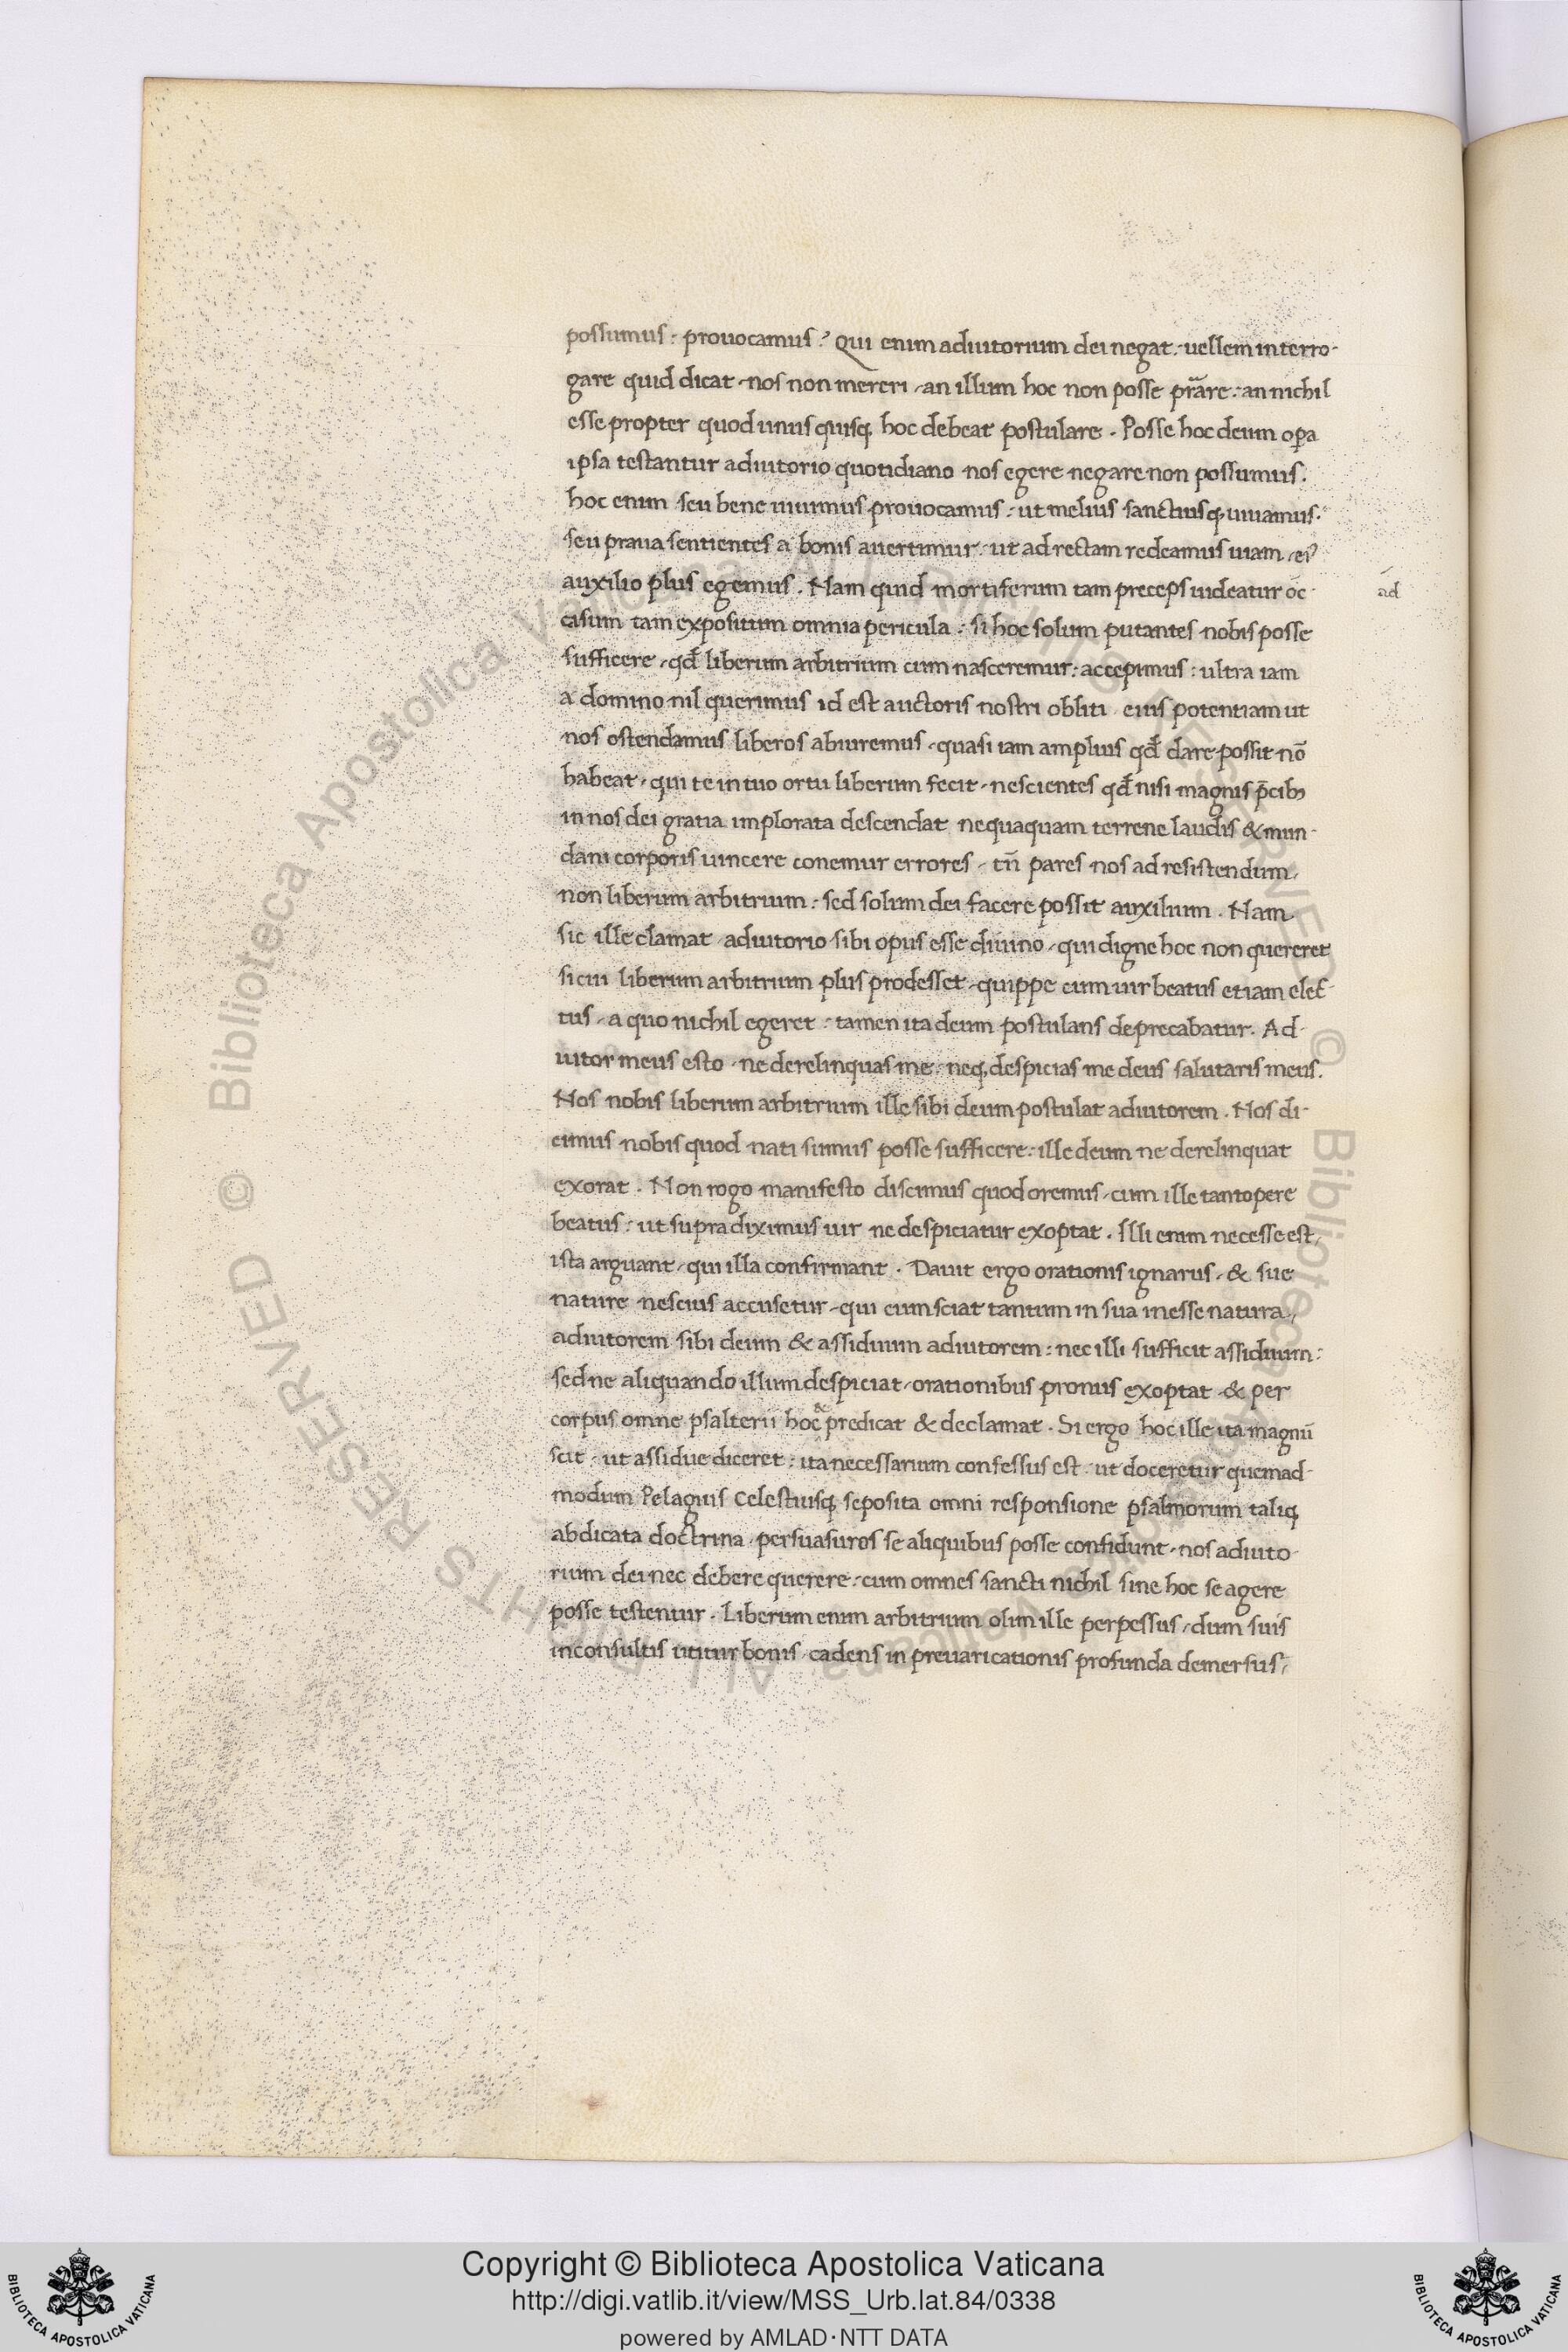 possumus: prouocamus? Qui enim adiutorium dei negat: uellem interro-
gare quid dicat nos non mereri, an illum hoc non posse prāre: an nichil
esse propter quod unusquisq; hoc debeat postulare. Posse hoc deum oꝑa
ipsa testantur adiutorio quotidiano nos egere negare non possumus.
hoc enim seu bene uiuimus prouocamus: ut melius sanctiusq; uiuamus.
seu praua sentientes a bonis auertimur: ut ad rectam redeamus uiam, ei᾽
auxilio plus egemus. Nam quid mortiferum tam preceps uideatur óc-
casum tam expositum omnia pericula: si hoc solum putantes nobis posse
ád
sufficere, qđ liberum arbitrium cum nasceremur: accepimus: ultra iam
a domino nil querimus id est auctoris nostri obliti eius potentiam ut
nos ostendamus liberos abiuremus, quasi iam amplius qđ dare possit nō
habeat, qui te in tuo ortu liberum fecit, nescientes qđ nisi magnis p̄cibꝫ
in nos dei gratia implorata descendat nequaquam terrene laudis & mun-
dani corporis uincere conemur errores, tn̄ pares nos ad resistendum,
non liberum arbitrium: sed solum dei facere possit auxilium. Nam
sic ille clamat adiutorio sibi opus esse diuino, qui digne hoc non quereret
si cui liberum arbitrium plus prodesset, quippe cum uir beatus etiam elec-
tus, a quo nichil egeret: tamen ita deum postulans deprecabatur. Ad-
iutor meus esto ne derelinquas me: neq; despicias me deus salutaris meus.
Nos nobis liberum arbitrium ille sibi deum postulat adiutorem. Nos di-
cimus nobis quod nati sumus posse sufficere: ille deum ne derelinquat
exorat. Non rogo manifesto discimus quod oremus, cum ille tantopere
beatus: ut supra diximus uir ne despiciatur exoptat. Illi enim necesse est,
ista arguant, qui illa confirmant. Dauit ergo orationis ignarus, & sue
nature nescius accusetur, qui cum sciat tantum in sua inesse natura,
adiutorem sibi deum & assiduum adiutorem: nec illi sufficit assiduum:
sed ne aliquando illum despiciat, orationibus pronus exoptat & per
corpus omne psalterii hoc & predicat & declamat. Si ergo hoc ille ita magnū
scit, ut assidue diceret: ita necessarium confessus est: ut doceretur quemad-
modum Pelagius Celestiusq; seposita omni responsione psalmorum taliq;
abdicata doctrina, persuasuros se aliquibus posse confidunt, nos adiuto-
rium dei nec debere querere: cum omnes sancti nichil sine hoc se agere
posse testentur. Liberum enim arbitrium olim ille perpessus, dum suis
inconsultis utitur bonis, cadens in preuaricationis profunda demersus,
© Biblioteca Apostolica Vaticana ALL RIGHTS RESERVED
Copyright © Biblioteca Apostolica Vaticana
http://digi.vatlib.it/view/MSS_Urb.lat.84/0338
powered by AMLAD·NTT DATA
BIBLIOTECA APOSTOLICA VATICANA
BIBLIOTECA APOSTOLICA VATICANA